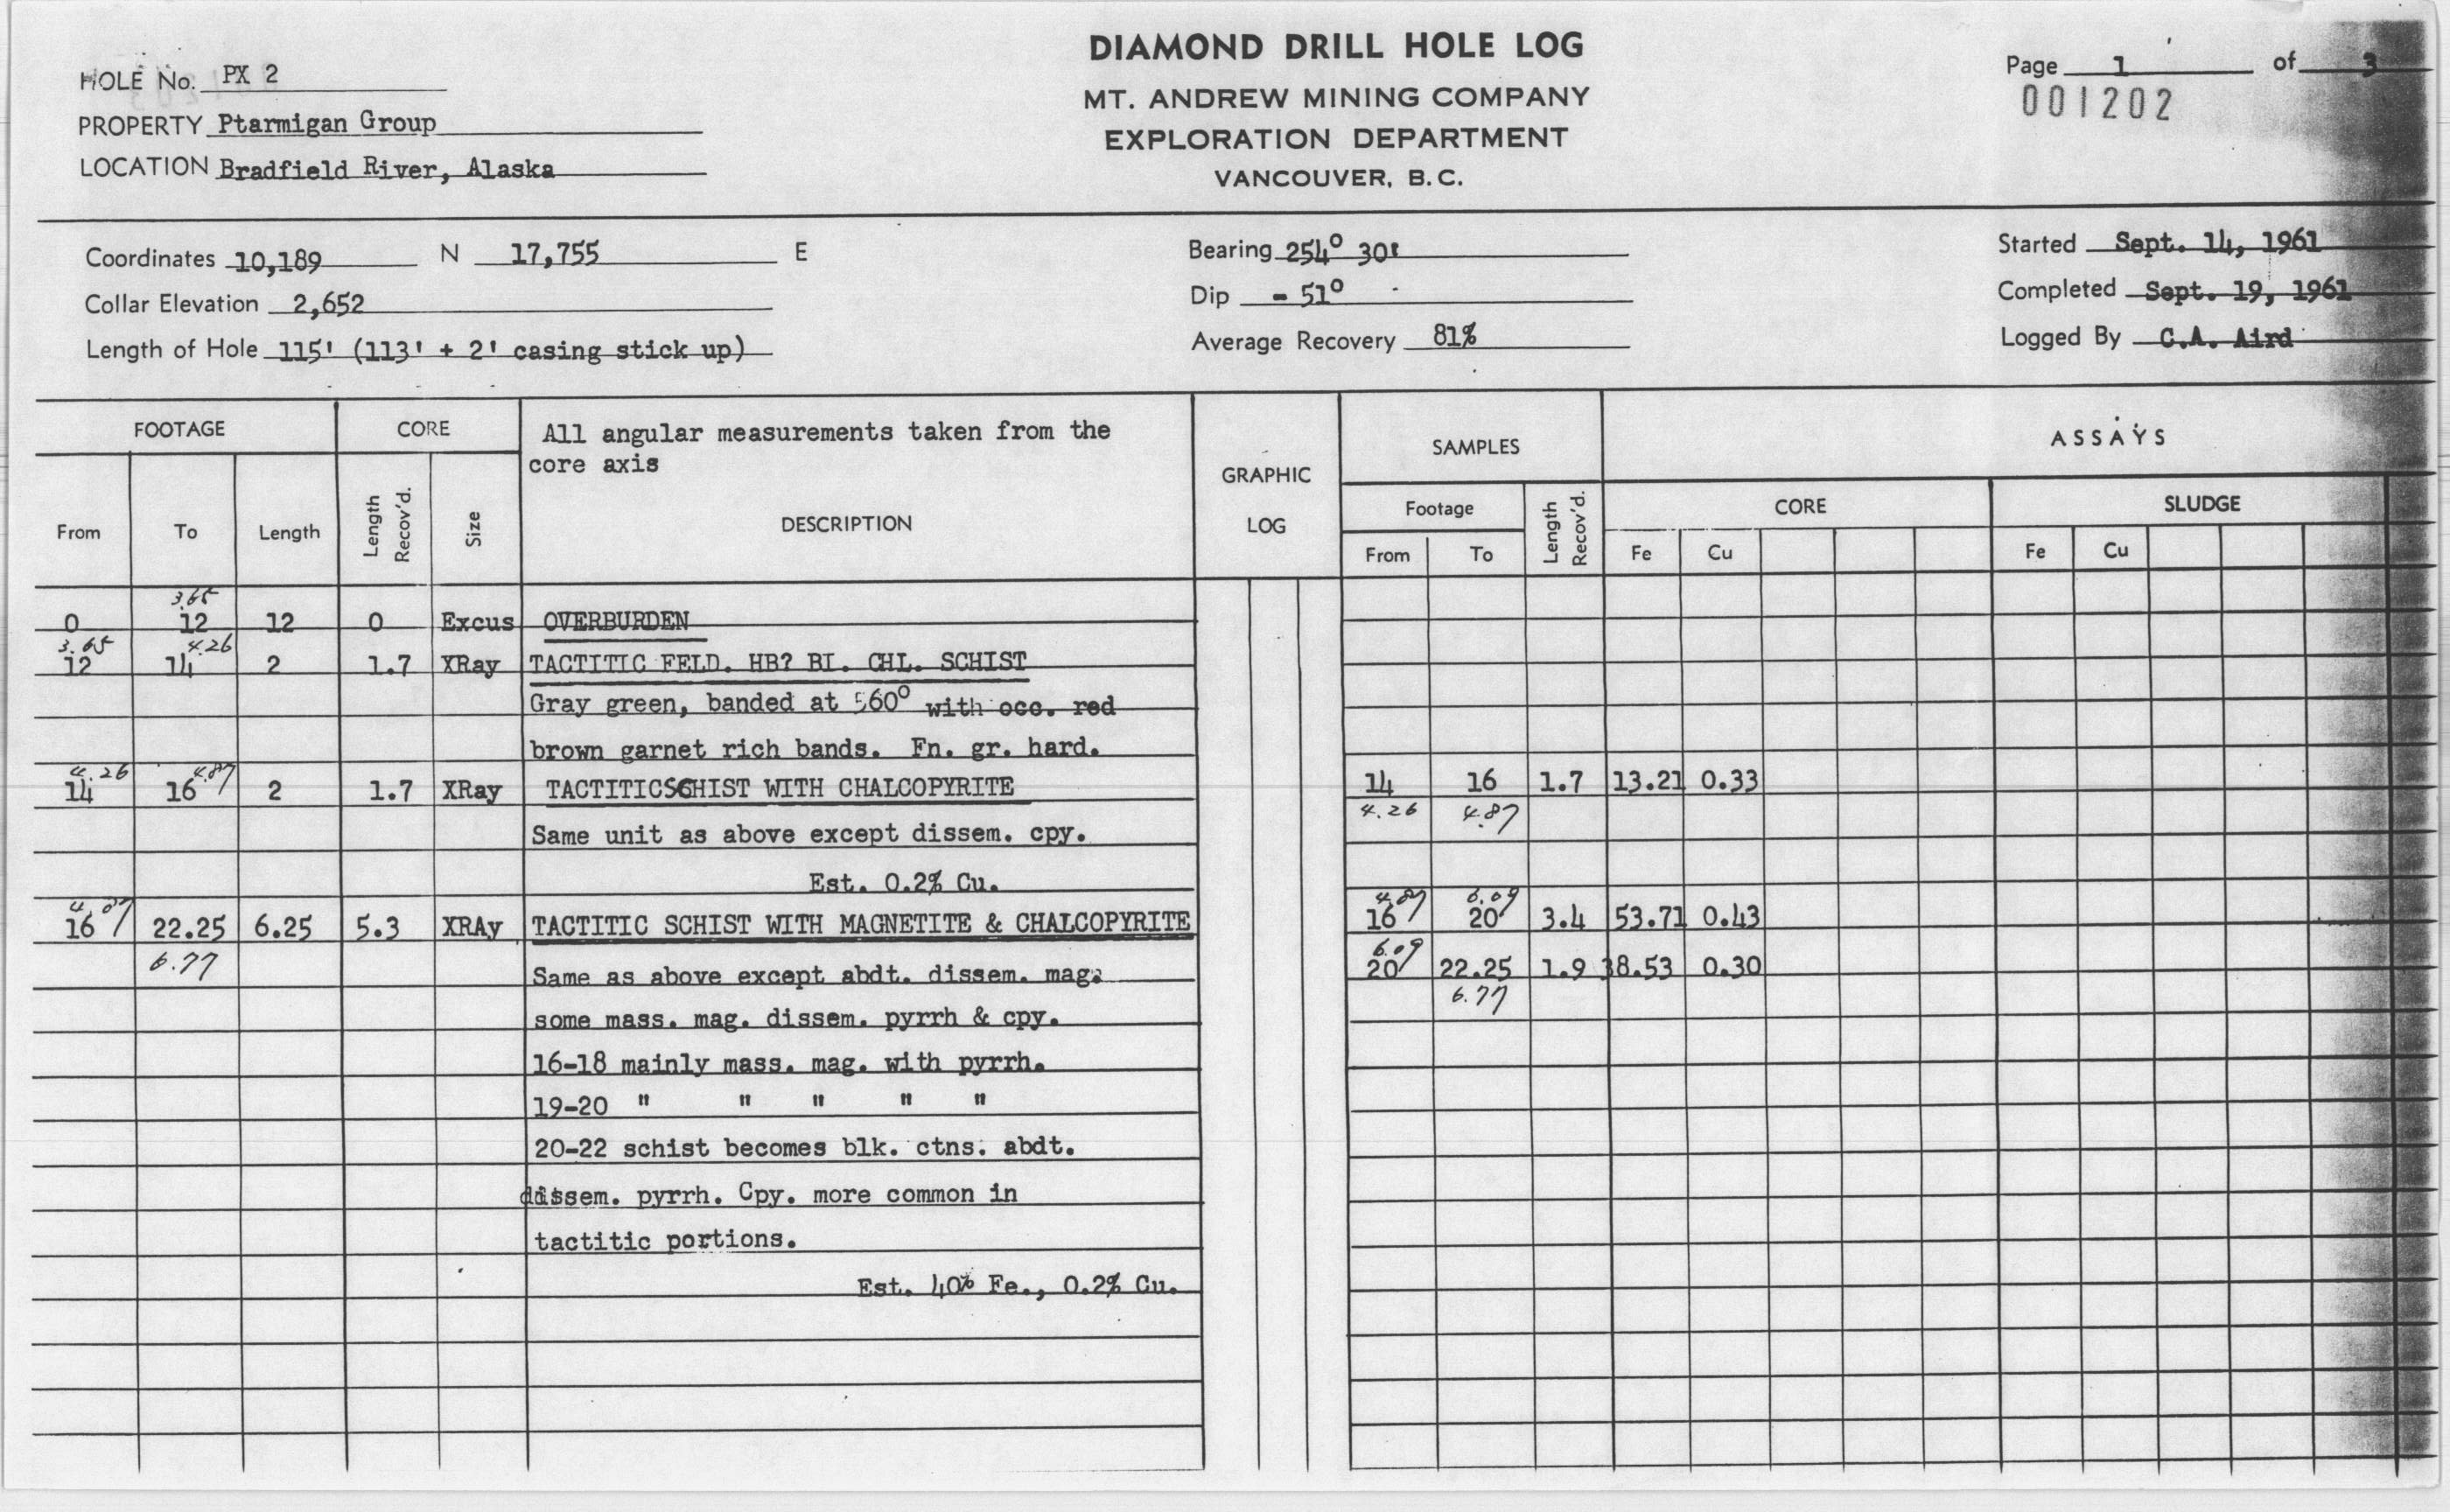 DIAMOND DRILL HOLE LOG
MT. ANDREW MINING COMPANY
EXPLORATION DEPARTMENT
VANCOUVER, B.C.
HOLE No. PX 2
PROPERTY Ptarmigan Group
LOCATION Bradfield River, Alaska
Page 1 of 3
001202
Coordinates 10,189 N 17,755 E
Collar Elevation 2,652
Length of Hole 115' (113' + 2' casing stick up)
Bearing 254° 30'
Dip - 51°
Average Recovery 81%
Started Sept. 14, 1961
Completed Sept. 19, 1961
Logged By C.A. Aird
FOOTAGE CORE All angular measurements taken from the
core axis
DESCRIPTION
GRAPHIC
LOG
SAMPLES ASSAYS
From To Length Length Recov'd. Size
Footage Length Recov'd. CORE SLUDGE
From To Fe Cu Fe Cu
3.65
0 12 12 0 Excus OVERBURDEN
3.65 4.26
12 14 2 1.7 XRay TACTITIC FELD. HB? BI. CHL. SCHIST
Gray green, banded at 60° with occ. red
brown garnet rich bands. Fn. gr. hard.
4.26 4.87
14 16 2 1.7 XRay TACTITICSCHIST WITH CHALCOPYRITE 14 16 1.7 13.21 0.33
4.26 4.87
Same unit as above except dissem. cpy.
Est. 0.2% Cu.
4.87 4.87 6.09
16 22.25 6.25 5.3 XRAy TACTITIC SCHIST WITH MAGNETITE & CHALCOPYRITE 16 20 3.4 53.71 0.43
6.77 6.09
Same as above except abdt. dissem. mag. 20 22.25 1.9 38.53 0.30
6.77
some mass. mag. dissem. pyrrh & cpy.
16-18 mainly mass. mag. with pyrrh.
19-20 " " " " "
20-22 schist becomes blk. ctns. abdt.
dissem. pyrrh. Cpy. more common in
tactitic portions.
Est. 40% Fe., 0.2% Cu.